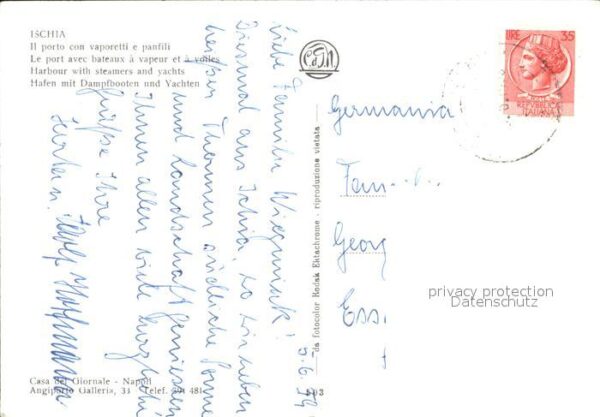 ISCHIA
Il porto con vaporetti e panfili
Le port avec bateaux à vapeur et à voiles
Harbour with steamers and yachts
Hafen mit Dampfbooten und Yachten
LIRE 35
REPVBBLICA
ITALIANA
Liebe Familie
Diesmal aus Ischia, wo wir neben
heißen Thermen südliche Sonne
und Landschaft genießen
Ihnen allen viele herzliche
Grüße Ihre
5.6.
Germania
Fam.
Georg
Ess
da fotocolor Kodak Ektachrome - riproduzione vietata
privacy protection
Datenschutz
Casa del Giornale - Napoli
Angiporto Galleria, 33 Telef. 391 481